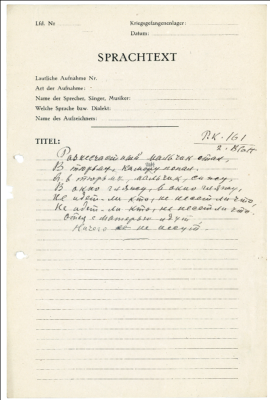 Lfd. Nr
Kriegsgefangenenlager:
Datum:
SPRACHTEXT
Lautliche Aufnahme Nr.
Art der Aufnahme:
Name der Sprecher, Sänger, Musiker:
Welche Sprache bzw. Dialekt:
Name des Aufzeichners:
P.K-161
2. Blatt
TITEL:
мальчик стал,
В тюрьму, попал.
в тюрьме, мальчик, сижу,
В окно гляжу, в окно гляжу,
Не идет-ли кто, не несет ли что,
Не идет-ли кто, не несет ли что.
Отец с матерью идут
Ничего не несут.